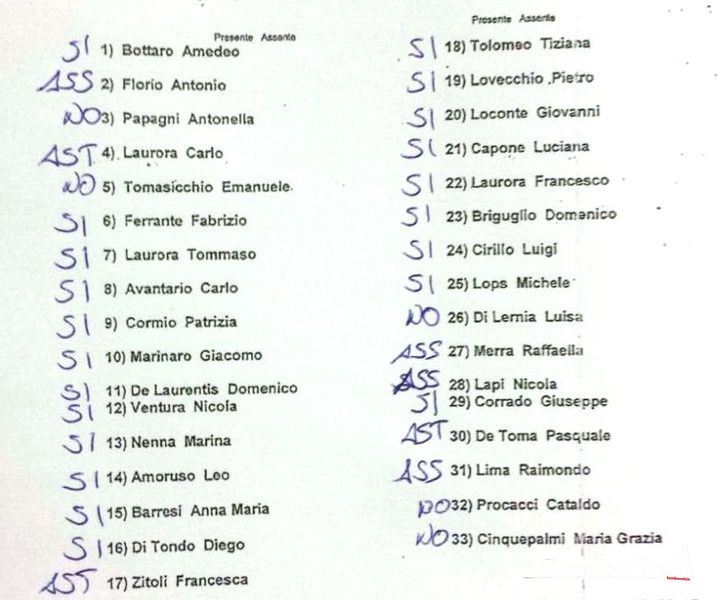 Presente Assente
SI 1) Bottaro Amedeo
ASS 2) Florio Antonio
NO 3) Papagni Antonella
AST 4). Laurora Carlo
NO 5) Tomasicchio Emanuele
SI 6) Ferrante Fabrizio
SI 7) Laurora Tommaso
SI 8) Avantario Carlo
SI 9) Cormio Patrizia
SI 10) Marinaro Giacomo
SI 11) De Laurentis Domenico
SI 12) Ventura Nicola
SI 13) Nenna Marina
SI 14) Amoruso Leo
SI 15) Barresi Anna Maria
SI 16) Di Tondo Diego
AST 17) Zitoli Francesca
Presente Assente
SI 18) Tolomeo Tiziana
SI 19) Lovecchio Pietro
SI 20) Loconte Giovanni
SI 21) Capone Luciana
SI 22) Laurora Francesco
SI 23) Briguglio Domenico
SI 24) Cirillo Luigi
SI 25) Lops Michele
NO 26) Di Lernia Luisa
ASS 27) Merra Raffaella
ASS 28) Lapi Nicola
SI 29) Corrado Giuseppe
AST 30) De Toma Pasquale
ASS 31) Lima Raimondo
NO 32) Procacci Cataldo
NO 33) Cinquepalmi Maria Grazia